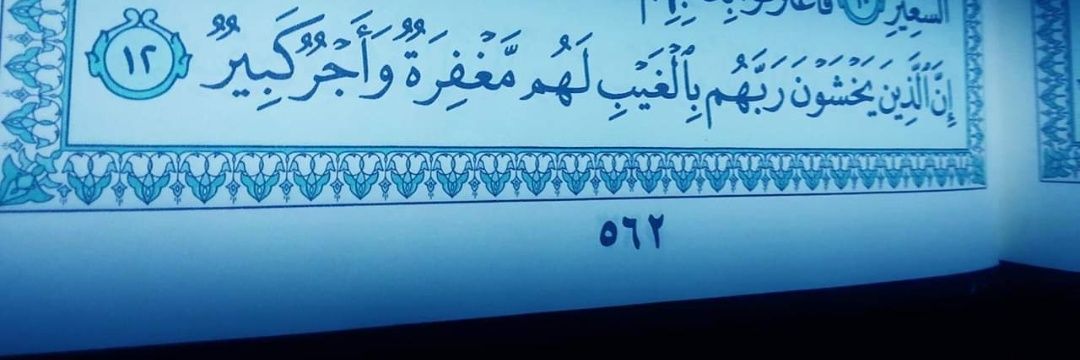 السَّعِيرِ ١١
إِنَّ ٱلَّذِينَ يَخْشَوْنَ رَبَّهُم بِٱلْغَيْبِ لَهُم مَّغْفِرَةٌ وَأَجْرٌ كَبِيرٌ ١٢
٥٦٢